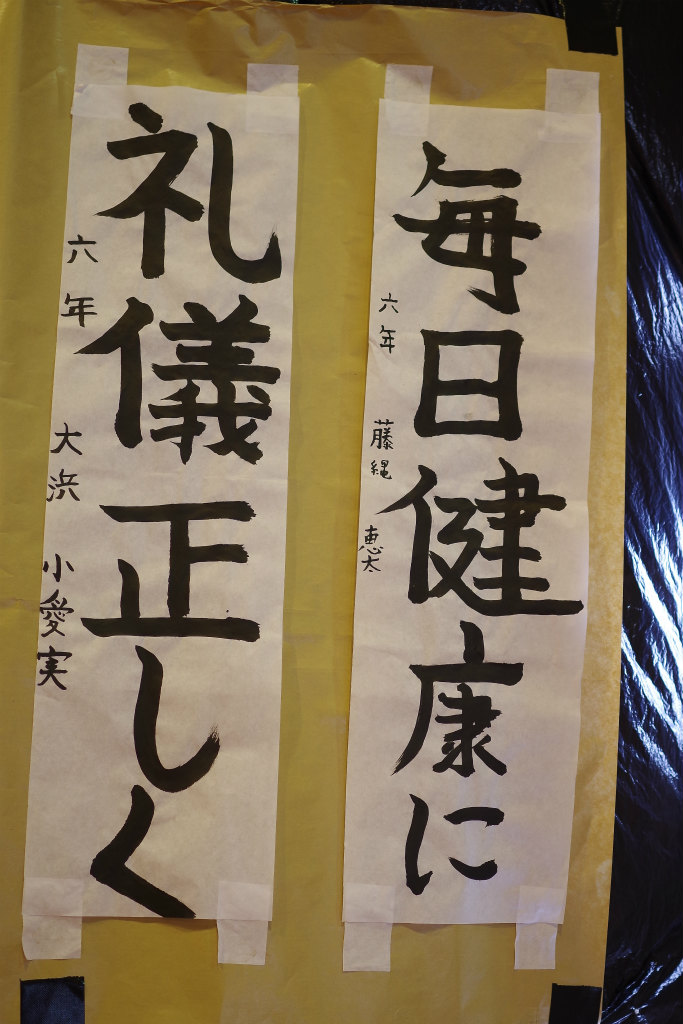 毎日健康に
六年 藤縄 恵太
礼儀正しく
六年 大浜 小愛実